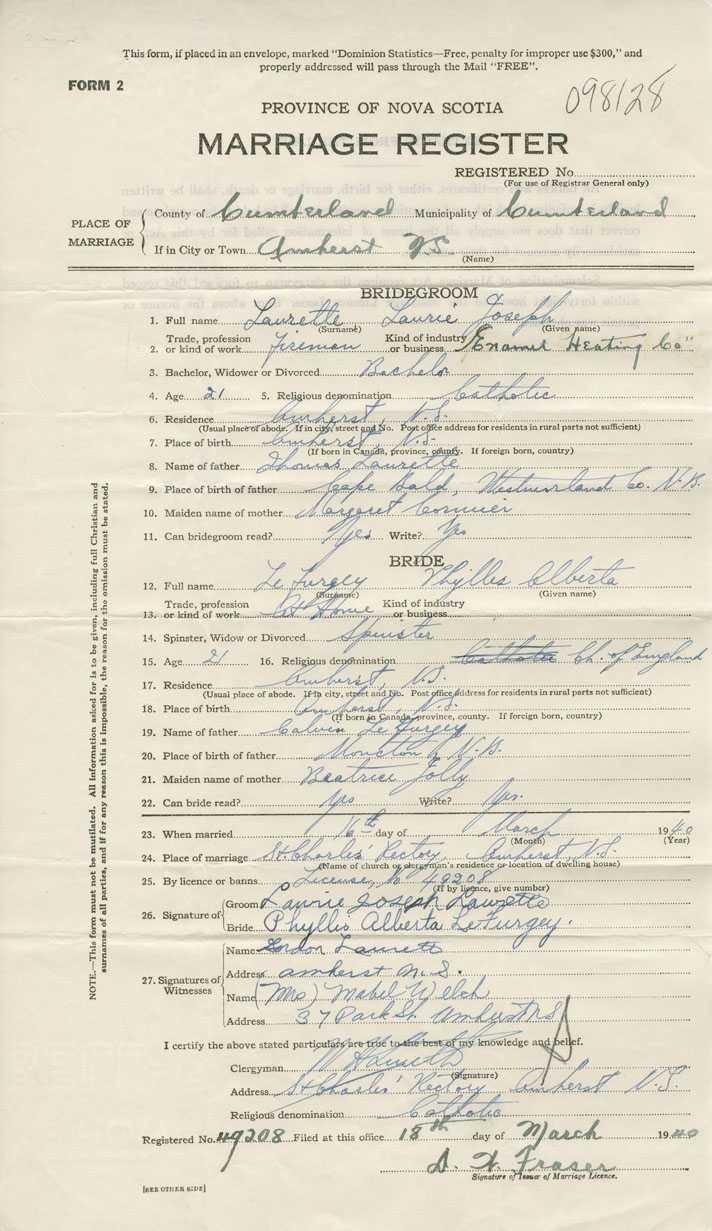 This form, if placed in an envelope, marked "Dominion Statistics—Free, penalty for improper use $300," and
properly addressed will pass through the Mail "FREE".
FORM 2
098128
PROVINCE OF NOVA SCOTIA
MARRIAGE REGISTER
REGISTERED No.
(For use of Registrar General only)
PLACE OF MARRIAGE
County of Cumberland Municipality of Cumberland
If in City or Town Amherst N.S.
(Name)
BRIDEGROOM
1. Full name Laurette Laurie Joseph
(Surname) (Given name)
2. Trade, profession or kind of work Fireman Kind of industry or business "Enamel Heating Co"
3. Bachelor, Widower or Divorced Bachelor
4. Age 21 5. Religious denomination Catholic
6. Residence Amherst, N.S.
(Usual place of abode. If in city, street and No. Post office address for residents in rural parts not sufficient)
7. Place of birth Amherst, N.S.
(If born in Canada, province, county. If foreign born, country)
8. Name of father Thomas Laurette
9. Place of birth of father Cape Bald, Westmorland Co. N.B.
10. Maiden name of mother Margaret
11. Can bridegroom read? Yes Write? Yes
BRIDE
12. Full name Le Furgey Phyllis Alberta
(Surname) (Given name)
13. Trade, profession or kind of work At Home Kind of industry or business
14. Spinster, Widow or Divorced Spinster
15. Age 21 16. Religious denomination Catholic Ch. of England
17. Residence Amherst, N.S.
(Usual place of abode. If in city, street and No. Post office address for residents in rural parts not sufficient)
18. Place of birth Amherst, N.S.
(If born in Canada, province, county. If foreign born, country)
19. Name of father Calvin Le Furgey
20. Place of birth of father Moncton, N.B.
21. Maiden name of mother Beatrice Jolly
22. Can bride read? Yes Write? Yes.
23. When married 16th day of March 1940
(Month) (Year)
24. Place of marriage St. Charles' Rectory, Amherst, N.S.
(Name of church or clergyman's residence or location of dwelling house)
25. By licence or banns License, No 49208
(If by licence, give number)
26. Signature of
Groom Laurie Joseph Laurette
Bride Phyllis Alberta LeFurgey.
27. Signatures of Witnesses
Name Gordon Laurette
Address amherst N.S.
Name (Mrs) Mabel Welch
Address 37 Park St. Amherst NS
I certify the above stated particulars are true to the best of my knowledge and belief.
Clergyman
(Signature)
Address St. Charles' Rectory Amherst N.S.
Religious denomination Catholic
Registered No. 49208 Filed at this office 18th day of March 1940
D. W. Fraser
Signature of Issuer of Marriage Licence.
[SEE OTHER SIDE]
NOTE.—This form must not be mutilated. All information asked for is to be given, including full Christian and
surnames of all parties, and if for any reason this is impossible, the reason for the omission must be stated.